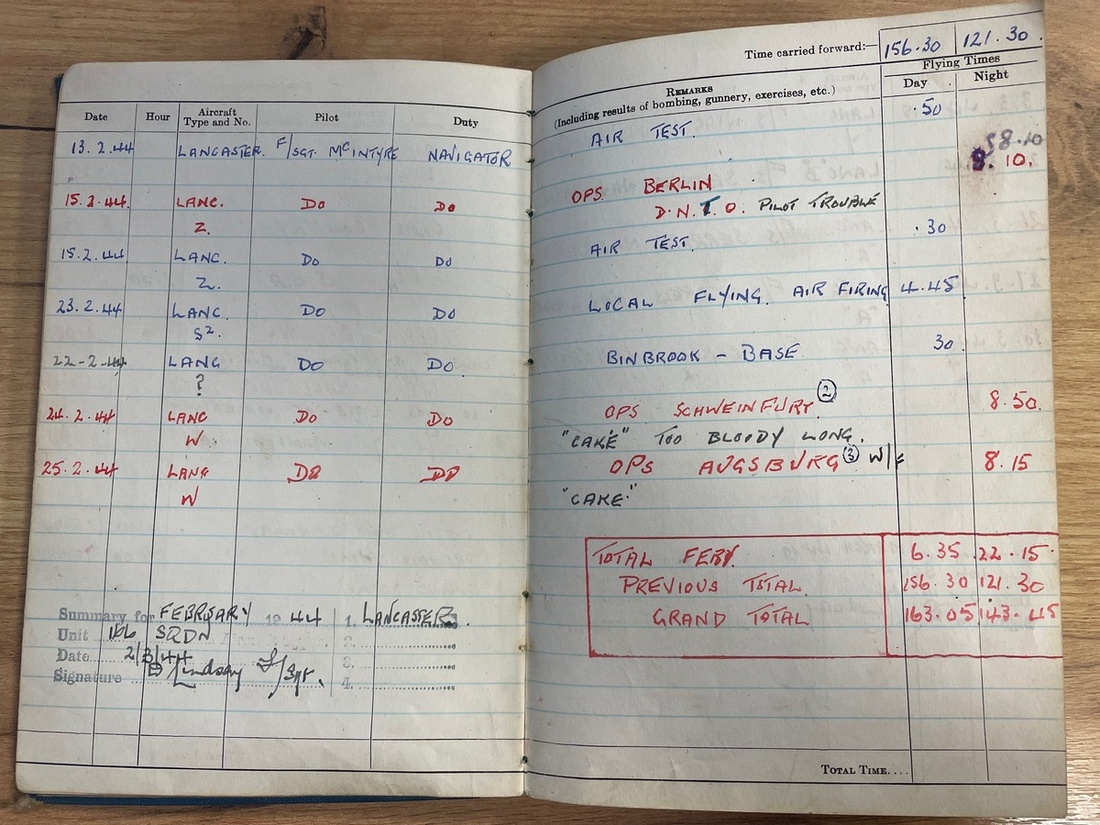 Time carried forward:— 156.30 121.30
Date Hour Aircraft Type and No. Pilot Duty
REMARKS (Including results of bombing, gunnery, exercises, etc.) Flying Times Day Night
13.2.44 LANCASTER. F/SGT. McINTYRE NAVIGATOR AIR TEST. .50
15.2.44. LANC. Do Do OPS. BERLIN 8.10
Z. D.N.T.O. PILOT TROUBLE 10.
15.2.44 LANC. Do Do AIR TEST. .30
Z.
23.2.44 LANC. Do Do LOCAL FLYING. AIR FIRING 4.45
S².
22-2-44 LANC Do Do. BINBROOK – BASE 30.
?
24.2.44 LANC Do Do OPS – SCHWEINFURT. 2 8.50.
W "CAKE" TOO BLOODY LONG.
25.2.44 LANC Do Do OPS AUGSBURG 3 8.15
W "CAKE."
TOTAL FEBY. 6.35 22.15.
PREVIOUS TOTAL. 156.30 121.30
GRAND TOTAL 163.05 143.45
Summary for FEBRUARY 1944 1. LANCASTER
Unit 166 SQDN 2.
Date 2/3/44 3.
Signature Lindsay F/Sgt. 4.
TOTAL TIME....